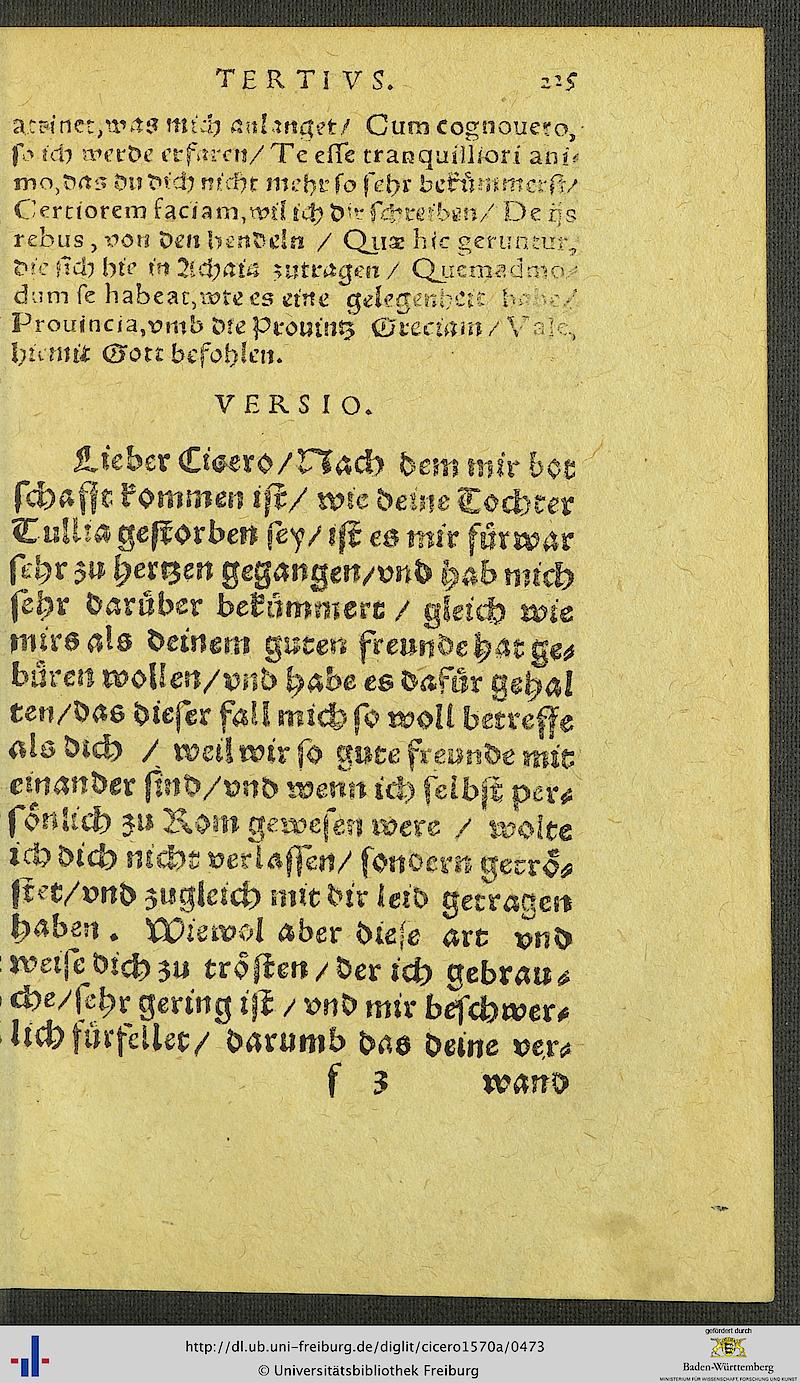 TERTIVS. 225
attinet, was mich anlanget/ Cum cognouero,
so ich werde erfaren/ Te esse tranquilliori ani⸗
mo, das du dich nicht mehr so sehr bekům̃erst/
Certiorem faciam, wil ich dir schreiben/ De ijs
rebus, von den hendeln / Quæ hic geruntur,
die sich hie in Achaia zutragen / Quemadmo⸗
dum se habeat, wie es eine gelegenheit habe/
Prouincia, vmb die Prouintz Greciam / Vale,
hiemit Gott befohlen.
VERSIO.
Lieber Cicero / Nach dem mir bot
schafft kommen ist/ wie deine Tochter
Tullia gestorben sey/ ist es mir fůrwar
sehr zu hertzen gegangen/ vnd hab mich
sehr darůber bekůmmert / gleich wie
mirs als deinem guten freunde hat ge⸗
bůren wollen/ vnd habe es dafůr gehal
ten/ das dieser fall mich so woll betreffe
als dich / weil wir so gute freunde mit
einander sind/ vnd wenn ich selbst per⸗
sőnlich zu Rom gewesen were / wolte
ich dich nicht verlassen/ sondern getrő⸗
stet/ vnd zugleich mit dir leid getragen
haben. Wiewol aber diese art vnd
weise dich zu trősten / der ich gebrau⸗
che/ sehr gering ist / vnd mir beschwer⸗
lich fůrfellet/ darumb das deine ver⸗
f 3 wand
http://dl.ub.uni-freiburg.de/diglit/cicero1570a/0473
© Universitätsbibliothek Freiburg
gefördert durch
Baden-Württemberg
MINISTERIUM FÜR WISSENSCHAFT, FORSCHUNG UND KUNST